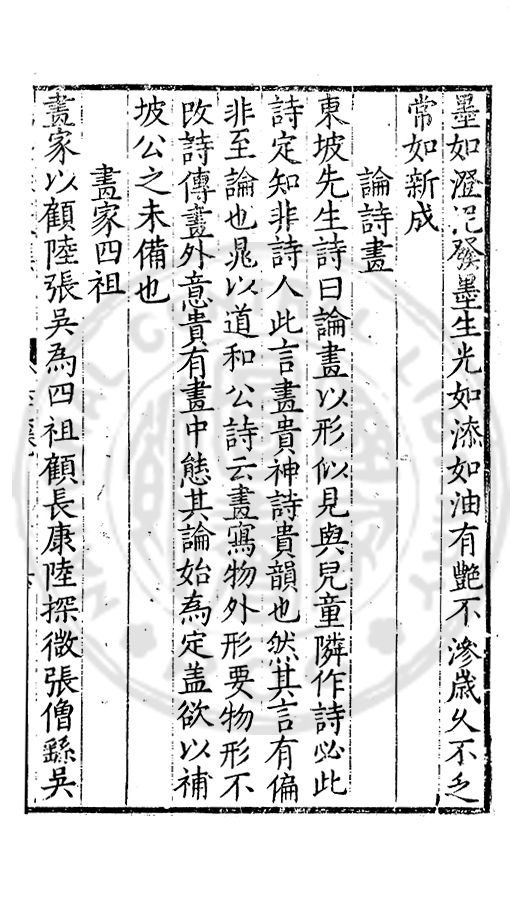 墨如澄泥發墨生光如漆如油有艶不滲歲久不乏
常如新成
論詩畫
東坡先生詩曰論畫以形似見與兒童隣作詩必此
詩定知非詩人此言畫貴神詩貴韻也然其言有偏
非至論也晁以道和公詩云畫寫物外形要物形不
改詩傳畫外意貴有畫中態其論始為定盖欲以補
坡公之未備也
畫家四祖
畫家以顧陸張吳為四祖顧長康陸探微張僧繇吳